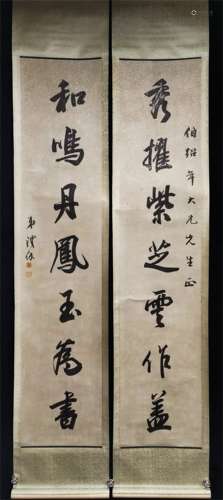 秀擢紫芝雲作蓋
伯紹年大兄先生正
和鳴丹鳳玉為書
弟